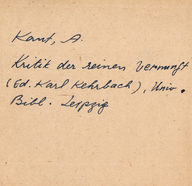 Kant, A.
Kritik der reinen Vernunft
(Ed. Karl Kehrbach), Univ.
Bibl. Leipzig